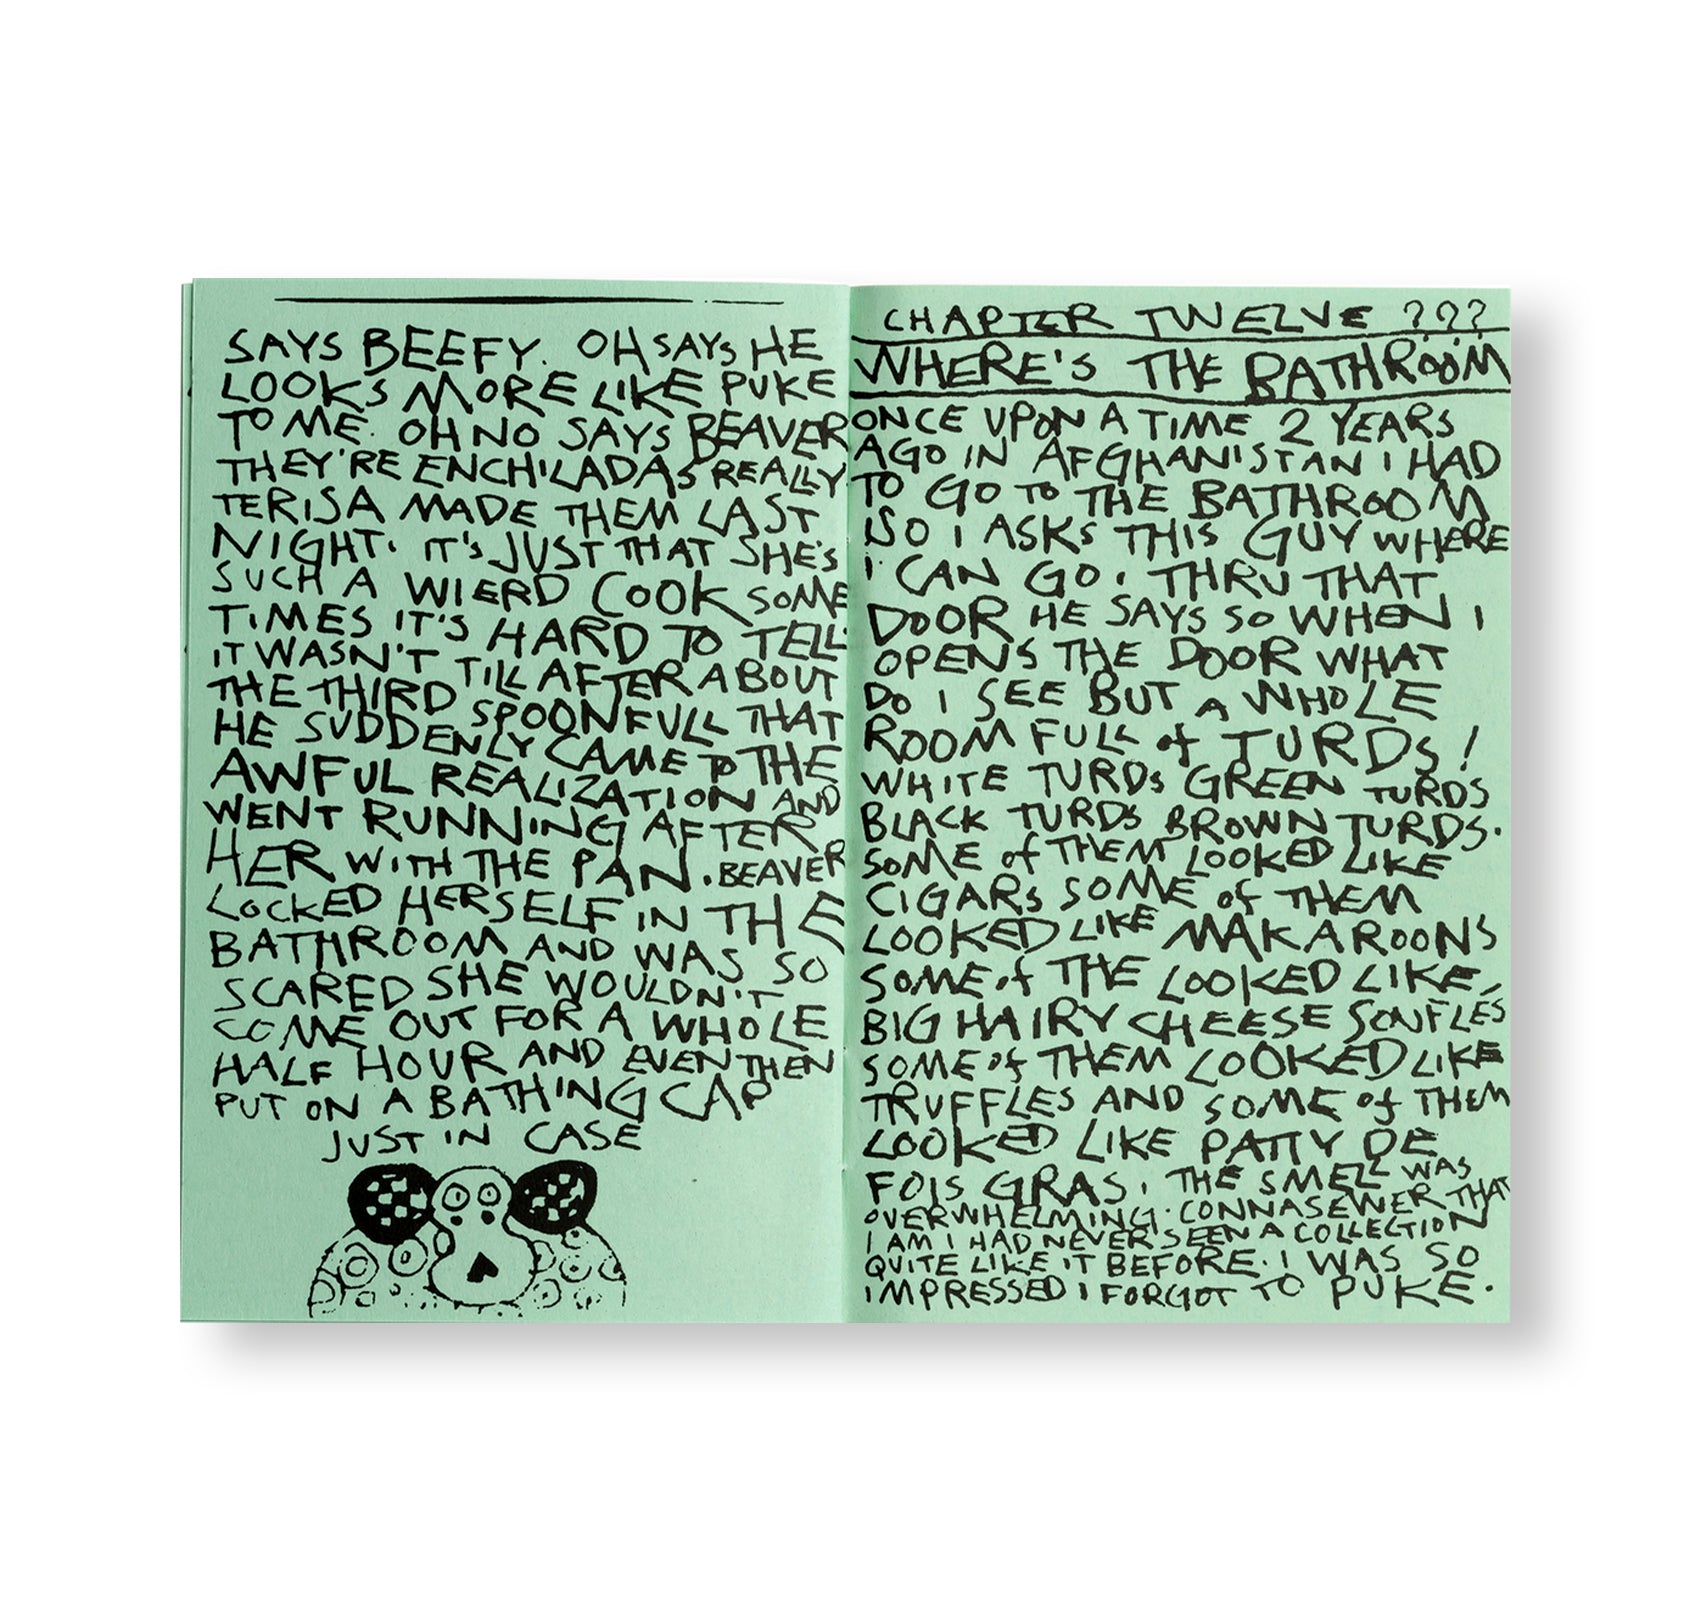 SAYS BEEFY. OH SAYS HE
LOOKS MORE LIKE PUKE
TO ME. OH NO SAYS BEAVER
THEY'RE ENCHILADAS REALLY
TERISA MADE THEM LAST
NIGHT. IT'S JUST THAT SHE'S
SUCH A WIERD COOK SOME
TIMES IT'S HARD TO TELL.
IT WASN'T TILL AFTER ABOUT
THE THIRD SPOONFULL THAT
HE SUDDENLY CAME TO THE
AWFUL REALIZATION AND
WENT RUNNING AFTER
HER WITH THE PAN. BEAVER
LOCKED HERSELF IN THE
BATHROOM AND WAS SO
SCARED SHE WOULDN'T
COME OUT FOR A WHOLE
HALF HOUR AND EVEN THEN
PUT ON A BATHING CAP
JUST IN CASE
CHAPTER TWELVE ???
WHERE'S THE BATHROOM
ONCE UPON A TIME 2 YEARS
AGO IN AFGHANISTAN I HAD
TO GO TO THE BATHROOM
SO I ASKS THIS GUY WHERE
I CAN GO. THRU THAT
DOOR HE SAYS SO WHEN I
OPENS THE DOOR WHAT
DO I SEE BUT A WHOLE
ROOM FULL of TURDS!
WHITE TURDS GREEN TURDS
BLACK TURDS BROWN TURDS.
SOME of THEM LOOKED LIKE
CIGARS SOME of THEM
LOOKED LIKE MAKAROONS
SOME of THE LOOKED LIKE
BIG HAIRY CHEESE SONFLÉS
SOME of THEM LOOKED LIKE
TRUFFLES AND SOME of THEM
LOOKED LIKE PATTY DE
FOIS GRAS. THE SMELL WAS
OVERWHELMING. CONNASEWER THAT
I AM I HAD NEVER SEEN A COLLECTION
QUITE LIKE IT BEFORE. I WAS SO
IMPRESSED I FORGOT TO PUKE.